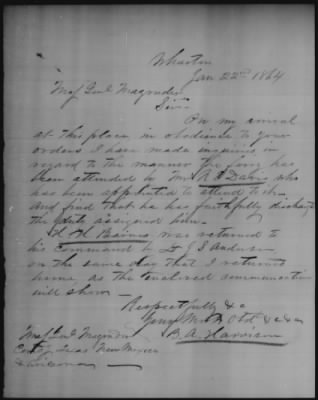 Wharton
Jan 22nd 1864
Maj Genl Magruder
Sir
On my arrival
at this place in obedience to your
orders I have made inquiries in
regard to the manner the ferry has
been attended to Mr A R Davis who
has been appointed to attend to it
and find that he has faithfully discharg
the duty assigned him.
H H Baines was returned to
his command by Lt J S Anderson
on the same day that I returned
home as the enclosed communication
will show —
Respectfully &c
Your Most Obd &c &c
B. A. Harrison
Maj Genl Magruder
Texas New Mexico
& Arizona